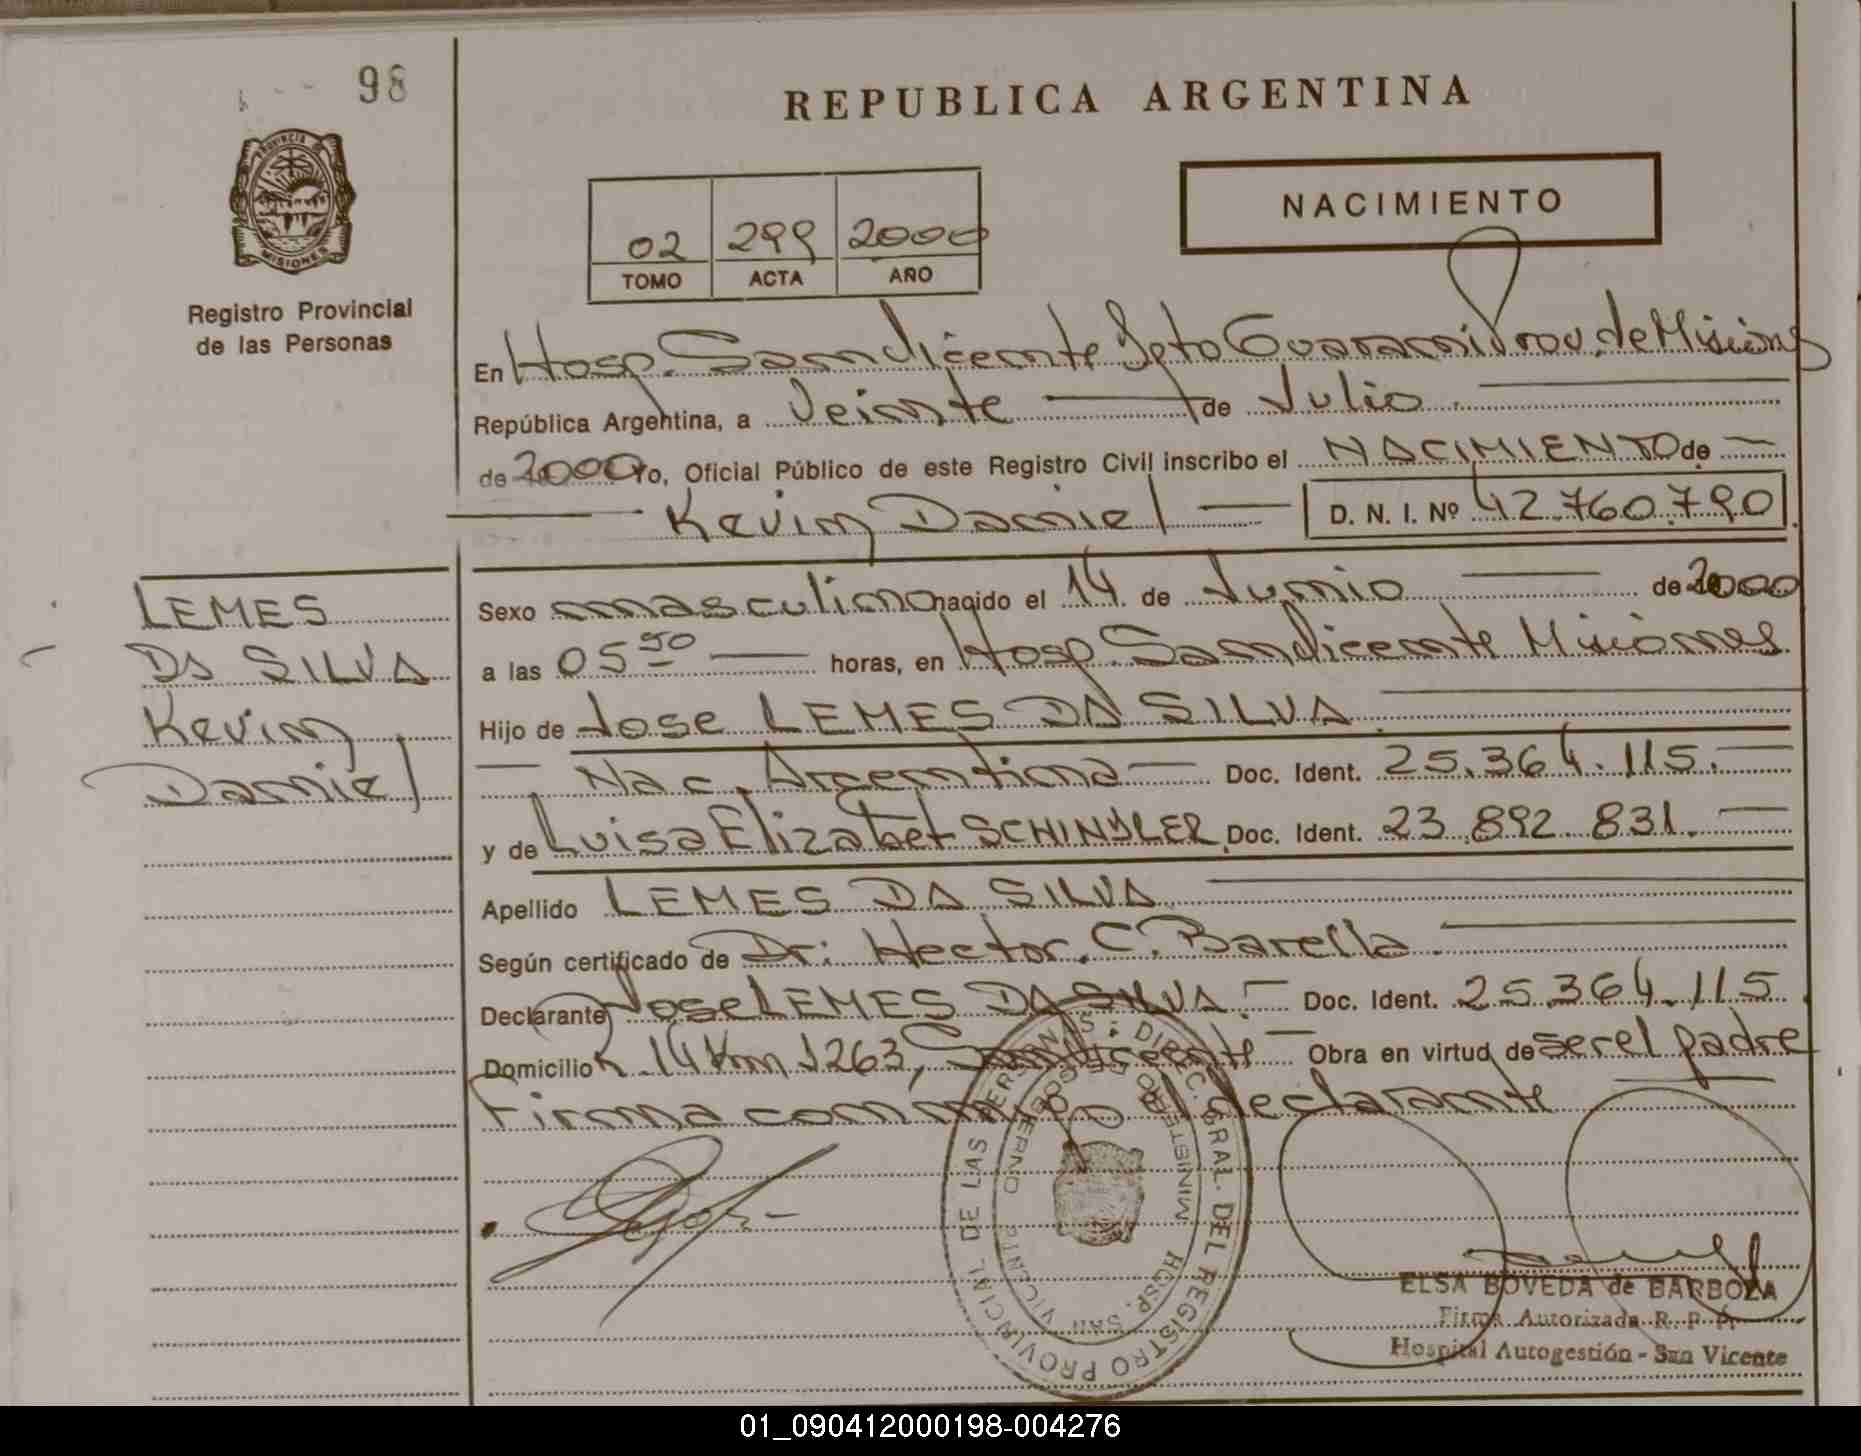 98
REPUBLICA ARGENTINA
PROVINCIA DE
MISIONES
Registro Provincial
de las Personas
02 299 2000
TOMO ACTA AÑO
NACIMIENTO
En Hosp. San Vicente Dpto Guarani Prov. de Misiones
República Argentina, a Veinte de Julio
de 2000 Yo, Oficial Público de este Registro Civil inscribo el NACIMIENTO de
Kevin Daniel D. N. I. Nº 42.760.790
LEMES
DA SILVA
Kevin
Daniel
Sexo masculino nacido el 14 de Junio de 2000
a las 05 horas, en Hosp. San Vicente Misiones
Hijo de Jose LEMES DA SILVA
Nac. Argentina Doc. Ident. 25.364.115.
y de Luisa Elizabet SCHINDLER Doc. Ident. 23.892.831.
Apellido LEMES DA SILVA
Según certificado de Dr. Hector C. Barella
Declarante Jose LEMES DA SILVA Doc. Ident. 25.364.115
Domicilio 14 Km 1263, San Vicente Obra en virtud de ser el padre
Firma conmigo el declarante
REGISTRO PROVINCIAL DE LAS PERSONAS - DIREC. GRAL. DEL
MINISTERIO DE GOBIERNO
HOSP. SAN VICENTE
ELSA BOVEDA de BARBOZA
Firma Autorizada R. P. P.
Hospital Autogestión - San Vicente
01_090412000198-004276